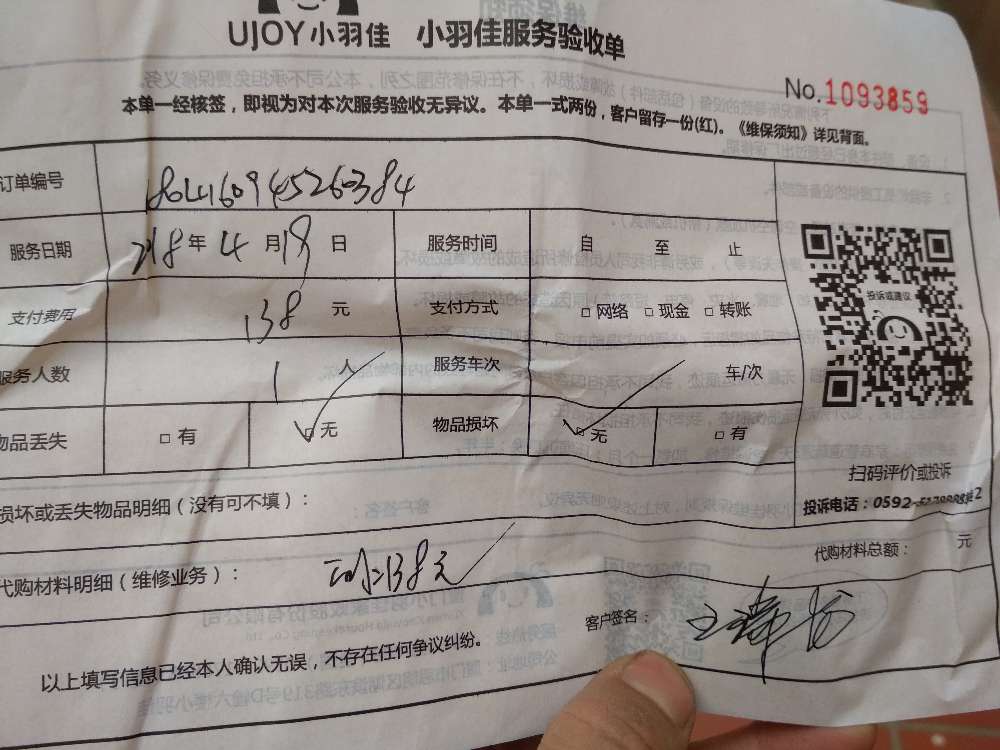 UJOY小羽佳 小羽佳服务验收单
No.1093859
本单一经核签，即视为对本次服务验收无异议。本单一式两份，客户留存一份(红)。《维保须知》详见背面。
订单编号 804160945260384
服务日期 218年4月19日 服务时间 自 至 止
支付费用 138元 支付方式 □网络 □现金 □转账
服务人数 1人 服务车次 车/次
物品丢失 □有 □无 物品损坏 □无 □有
投诉或建议
扫码评价或投诉
损坏或丢失物品明细（没有可不填）：
投诉电话：0592-
代购材料总额： 元
代购材料明细（维修业务）： 138元
客户签名：
以上填写信息已经本人确认无误，不存在任何争议纠纷。